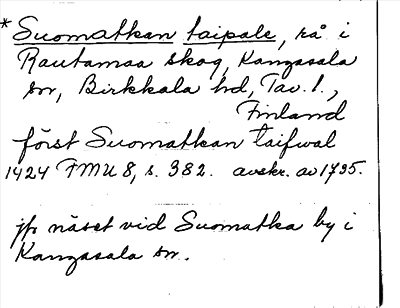 *Suomatkan taipale, rå i
Rautamaa skog, Kangasala
sn, Birkkala hd, Tav. l.,
Finland
först Suomatkan taifwal
1424 FMU 8, s. 382. avskr. av 1795.
jfr näset vid Suomatka by i
Kangasala sn.